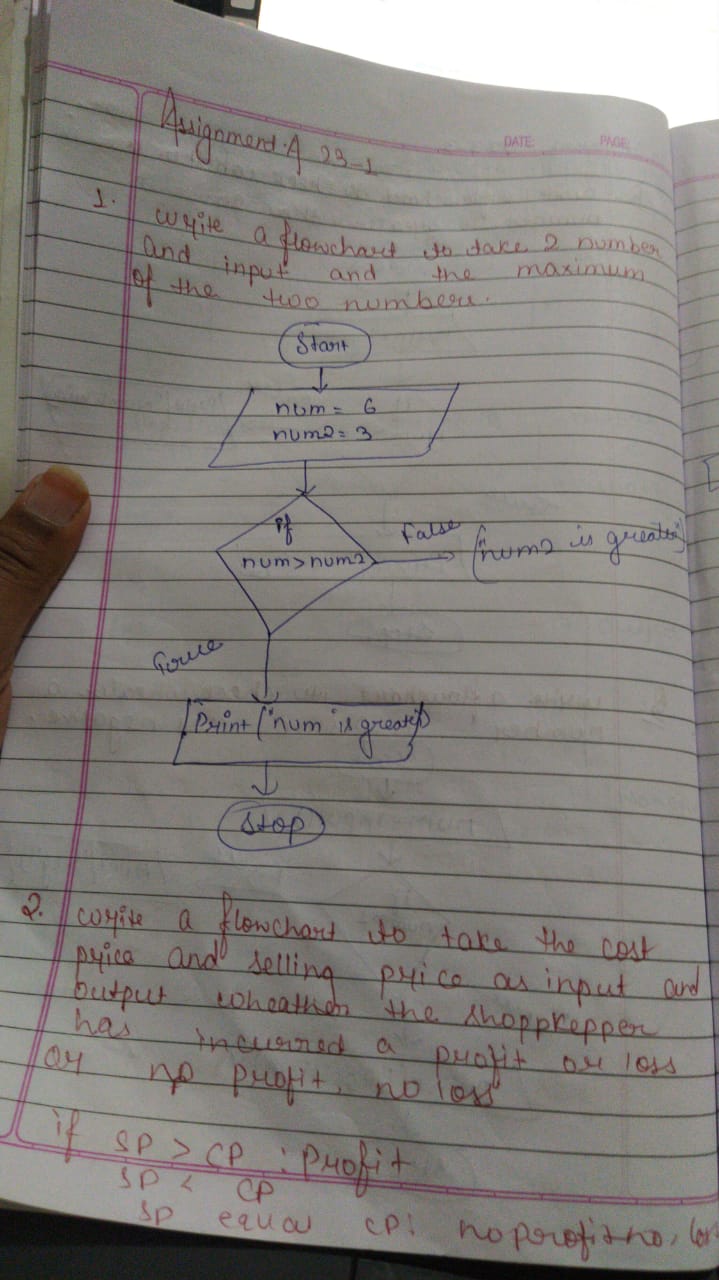 Assignment.A 23-1
DATE: PAGE:
1. write a flowchart to take 2 number
and input and the maximum
of the two numbers.
Start
num = 6
num2 = 3
if
num > num2
False
("num2 is greater")
True
Print ("num is greater")
Stop
2. write a flowchart to take the cost
price and selling price as input and
output wheather the shoppkepper
has incurred a profit or loss
or no profit, no loss
if SP > CP : Profit
SP < CP
SP equal CP: no profit no, loss